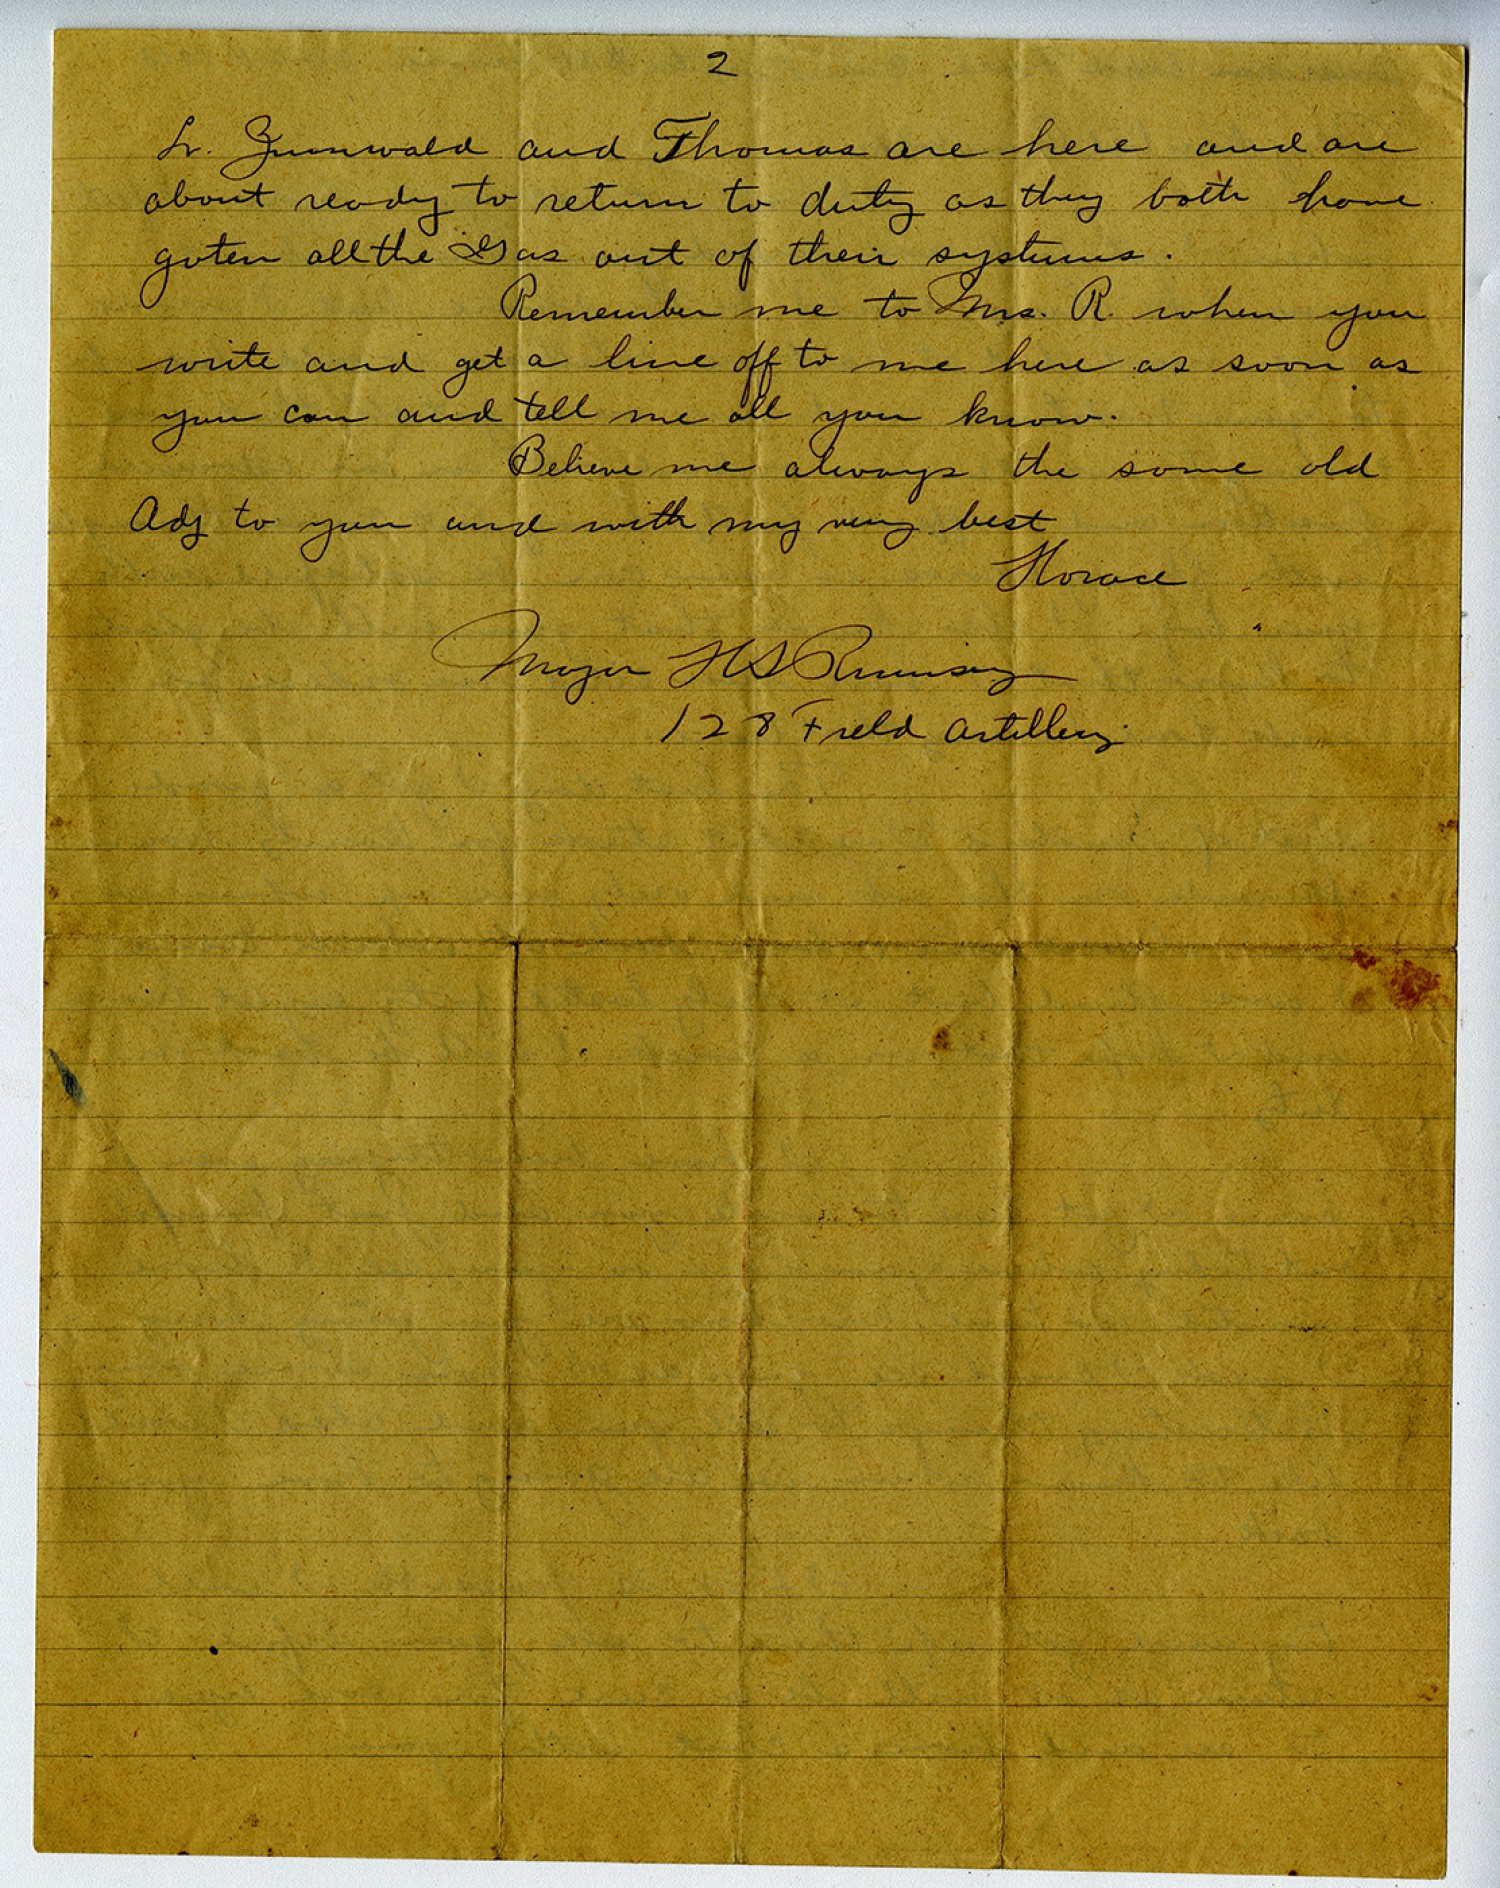 2
Lt. Zumwald and Thomas are here and are
about ready to return to duty as they both have
goten all the Gas out of their systems.
Remember me to Mrs. R. when you
write and get a line off to me here as soon as
you can and tell me all you know.
Believe me always the same old
Adj to you and with my very best
Horace
Major H S Rumsey
128 Field Artillery